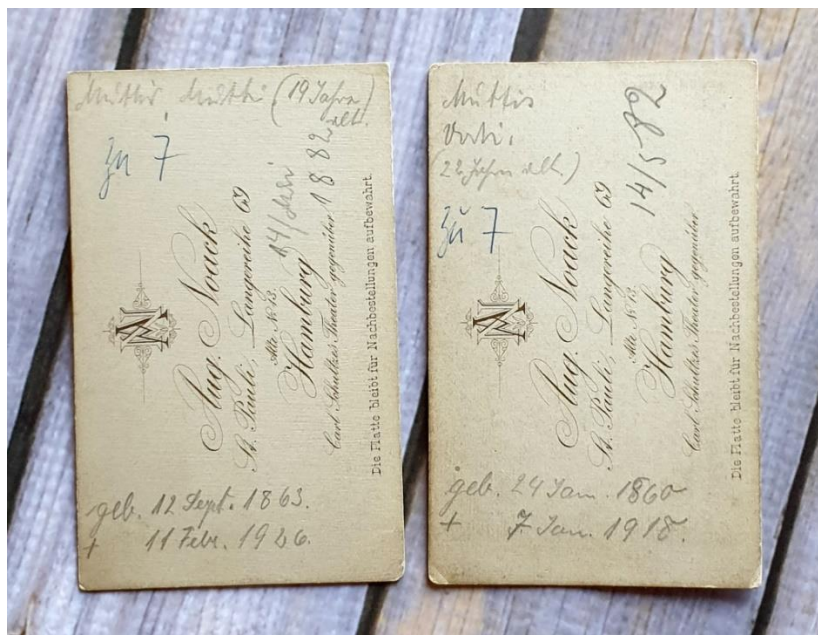 Muttis Mutti (19 Jahre
alt.
zu 7
14/Mai 1882
Aug. Noack
St. Pauli, Langereihe 69
Alte № 13.
Hamburg
Carl Schultzes Theater gegenüber
Die Platte bleibt für Nachbestellungen aufbewahrt.
geb. 12 Sept. 1863.
+ 11 Febr. 1926.
Muttis
Vati.
(22 Jahre alt.)
zu 7
14/5 82
Aug. Noack
St. Pauli, Langereihe 69
Alte № 13.
Hamburg
Carl Schultzes Theater gegenüber
Die Platte bleibt für Nachbestellungen aufbewahrt.
geb. 24 Jan. 1860
+ 7. Jan. 1918.